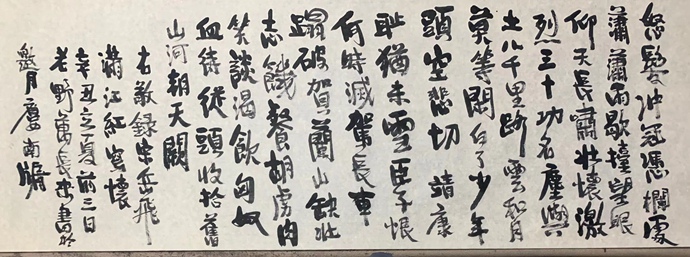 怒髮冲冠憑欄處
瀟瀟雨歇擡望眼
仰天長嘯壯懷激
烈三十功名塵與
土八千里路雲和月
莫等閒白了少年
頭空悲切 靖康
耻猶未雪臣子恨
何時滅駕長車
蹋破賀蘭山缺壯
志饑餐胡虜肉
笑談渴飲匈奴
血待從頭收拾舊
山河朝天闕
右敬録宋岳飛
滿江紅寫懷
辛丑之夏前三日
老野萬長書於
邀月廬南牖